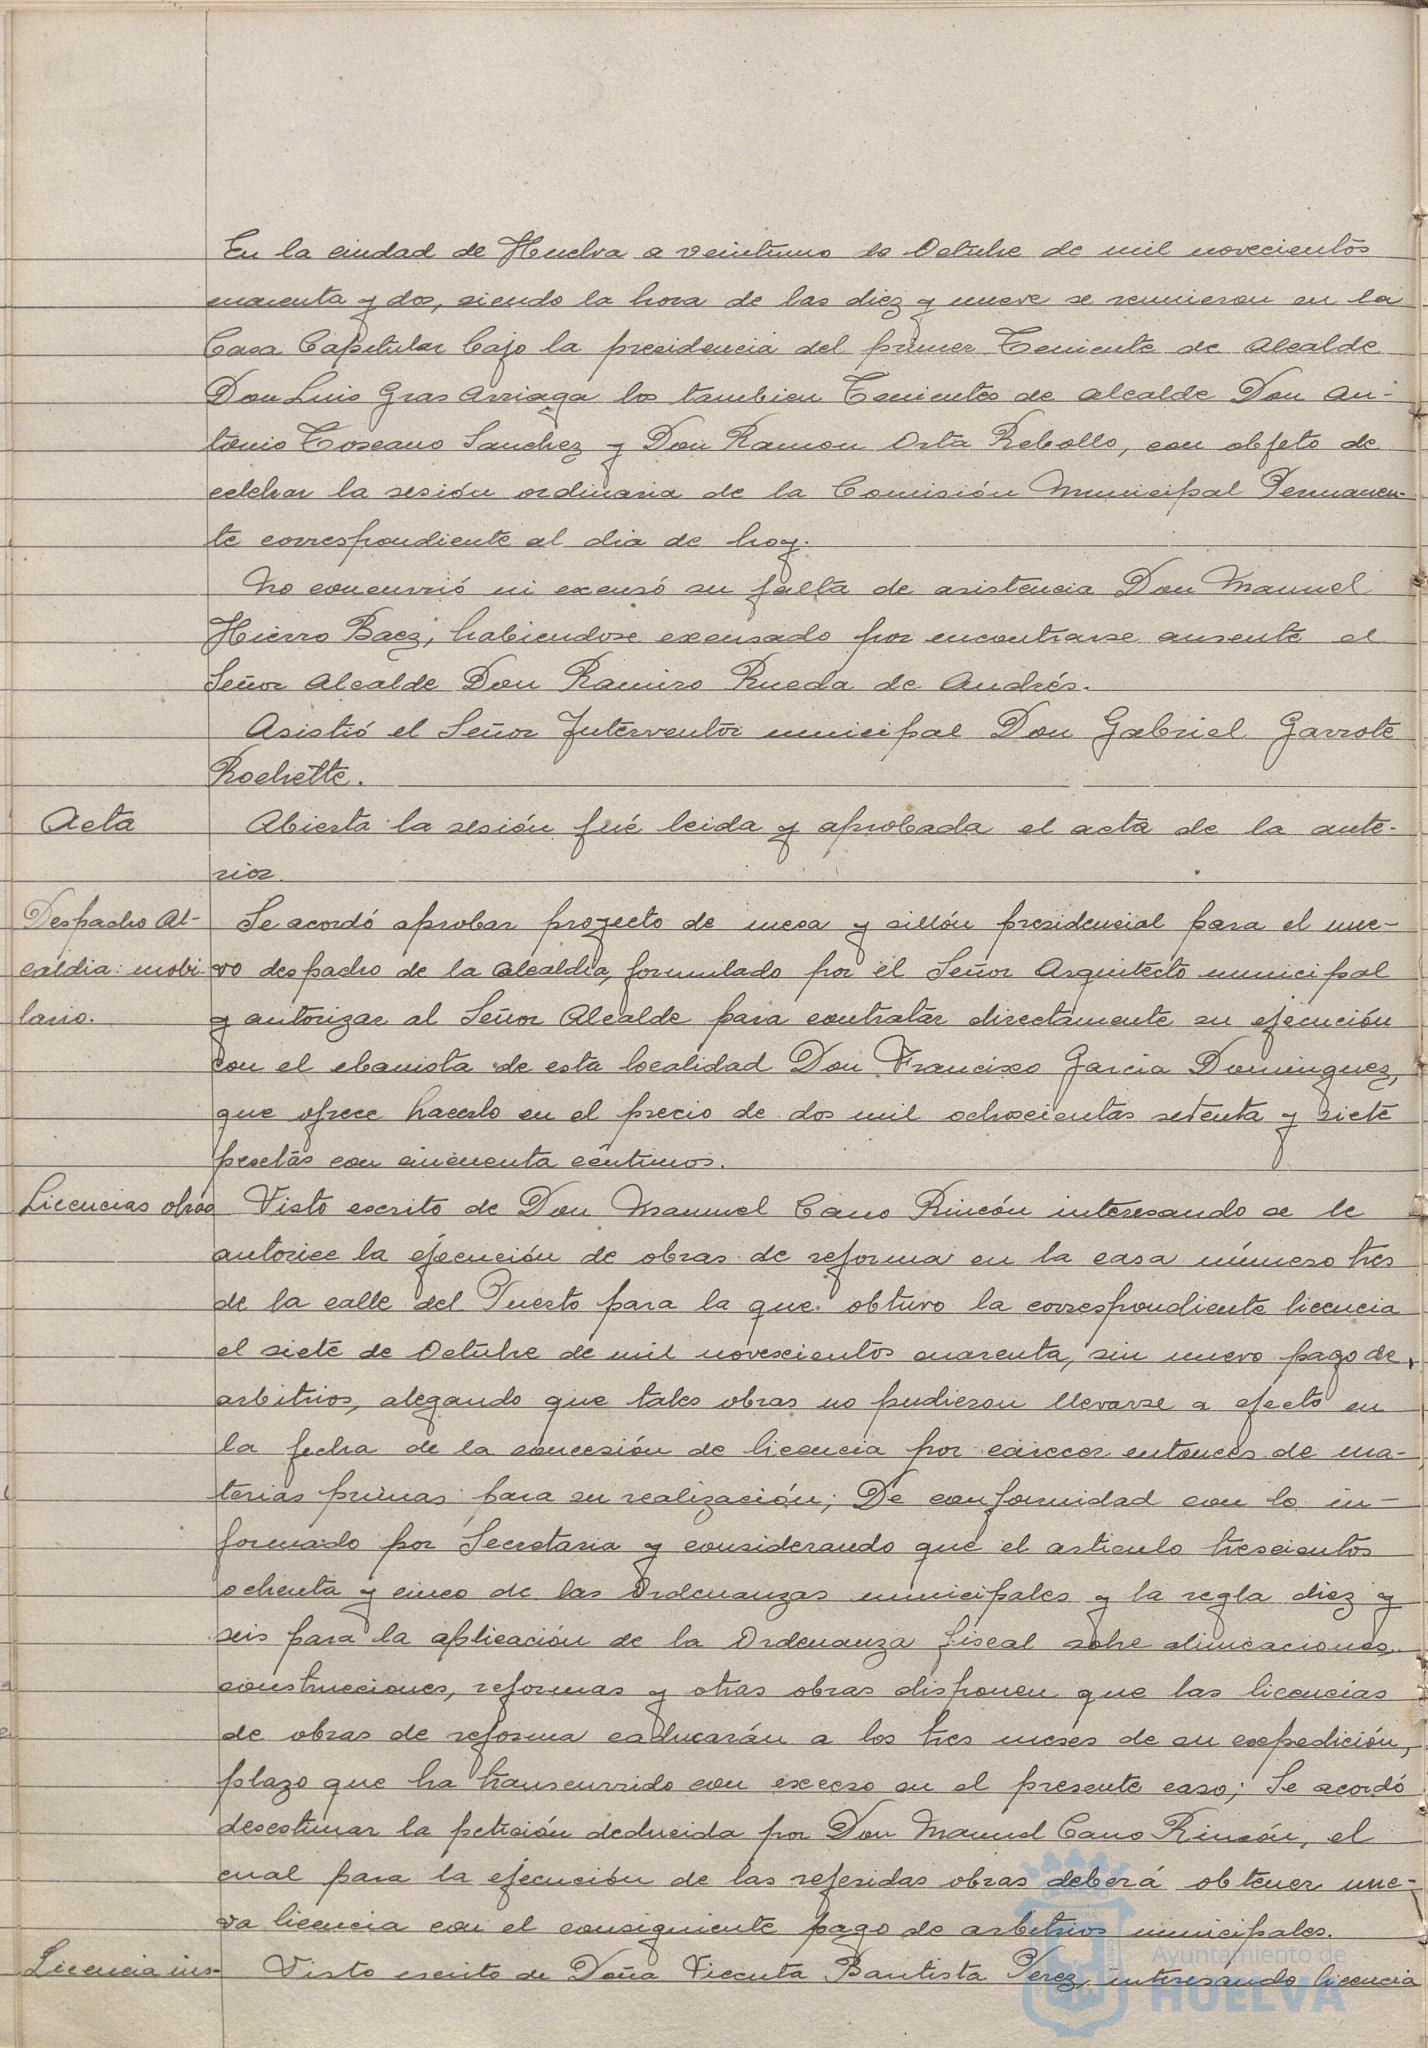 En la ciudad de Huelva a veintiuno de Octubre de mil novecientos
cuarenta y dos, siendo la hora de las diez y nueve se reunieron en la
Casa Capitular bajo la presidencia del primer Teniente de Alcalde
Don Luis Gras Arriaga los tambien Tenientes de Alcalde Don An-
tonio Toscano Sanchez y Don Ramon Orta Rebollo, con objeto de
celebrar la sesión ordinaria de la Comisión Municipal Permanen-
te correspondiente al dia de hoy.
No concurrió ni excusó su falta de asistencia Don Manuel
Hierro Baez, habiendose excusado por encontrarse ausente el
Señor Alcalde Don Ramiro Rueda de Andrés.
Asistió el Señor Interventor municipal Don Gabriel Garrote
Rochette.
Acta
Abierta la sesión fué leida y aprobada el acta de la ante-
rior.
Despacho Al-
caldia: mobi-
liario.
Se acordó aprobar proyecto de mesa y sillón presidencial para el nue-
vo despacho de la Alcaldia, formulado por el Señor Arquitecto municipal
y autorizar al Señor Alcalde para contratar directamente su ejecución
con el ebanista de esta localidad Don Francisco Garcia Dominguez,
que ofrece hacerlo en el precio de dos mil ochocientas setenta y siete
pesetas con cincuenta céntimos.
Licencias obras
Visto escrito de Don Manuel Cano Rincón interesando se le
autorice la ejecución de obras de reforma en la casa número tres
de la calle del Puerto para la que obtuvo la correspondiente licencia
el siete de Octubre de mil novescientos cuarenta, sin nuevo pago de
arbitrios, alegando que tales obras no pudieron llevarse a efecto en
la fecha de la concesión de licencia por carecer entonces de ma-
terias primas para su realización; De conformidad con lo in-
formado por Secretaria y considerando que el articulo trescientos
ochenta y cinco de las Ordenanzas municipales y la regla diez y
seis para la aplicación de la Ordenanza fiscal sobre alineaciones,
construcciones, reformas y otras obras disponen que las licencias
de obras de reforma caducarán a los tres meses de su expedición,
plazo que ha transcurrido con exceso en el presente caso; Se acordó
desestimar la petición deducida por Don Manuel Cano Rincón, el
cual para la ejecución de las referidas obras deberá obtener nue-
va licencia con el consiguiente pago de arbitrios municipales.
Licencia ins-
Visto escrito de Doña Vicenta Bautista Perez, interesando licencia
Ayuntamiento de
HUELVA